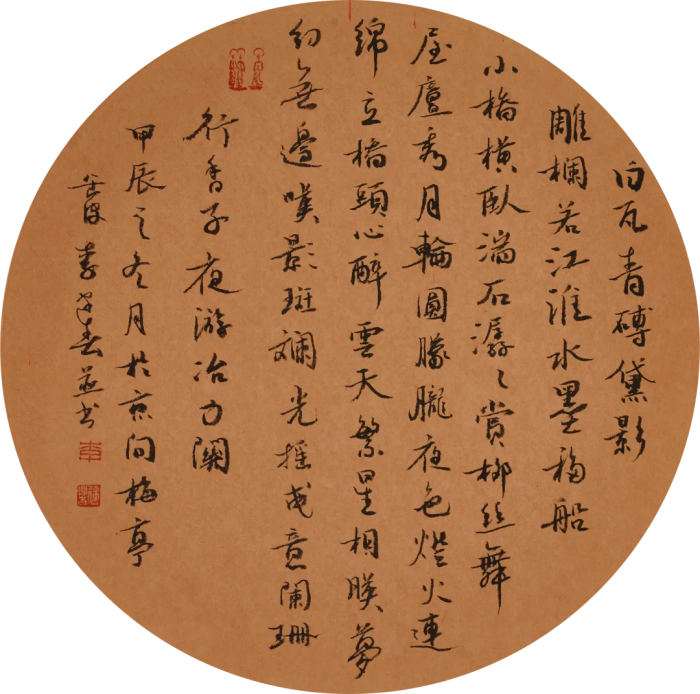 白瓦青磚黛影
雕欄若江淮水墨移船
小橋橫臥湍石潺々賞柳絲舞
屋廬秀月輪圓朦朧夜色燈火連
綿立橋頭心醉雲天繁星相映夢
幻無邊嘆影斑斕光搖曳意闌珊
行香子夜游冶力關
甲辰之冬月於京問梅亭
李春並书